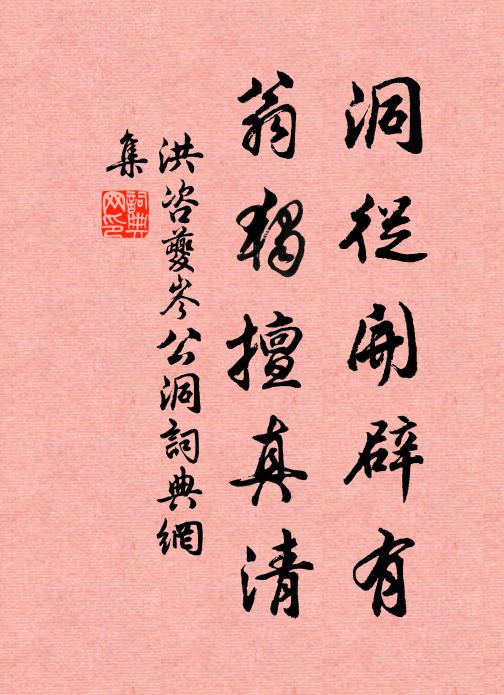 洞從開辟有
翁獨擅真清
洪咨夔岑公洞詞典網
集
詞典
网印